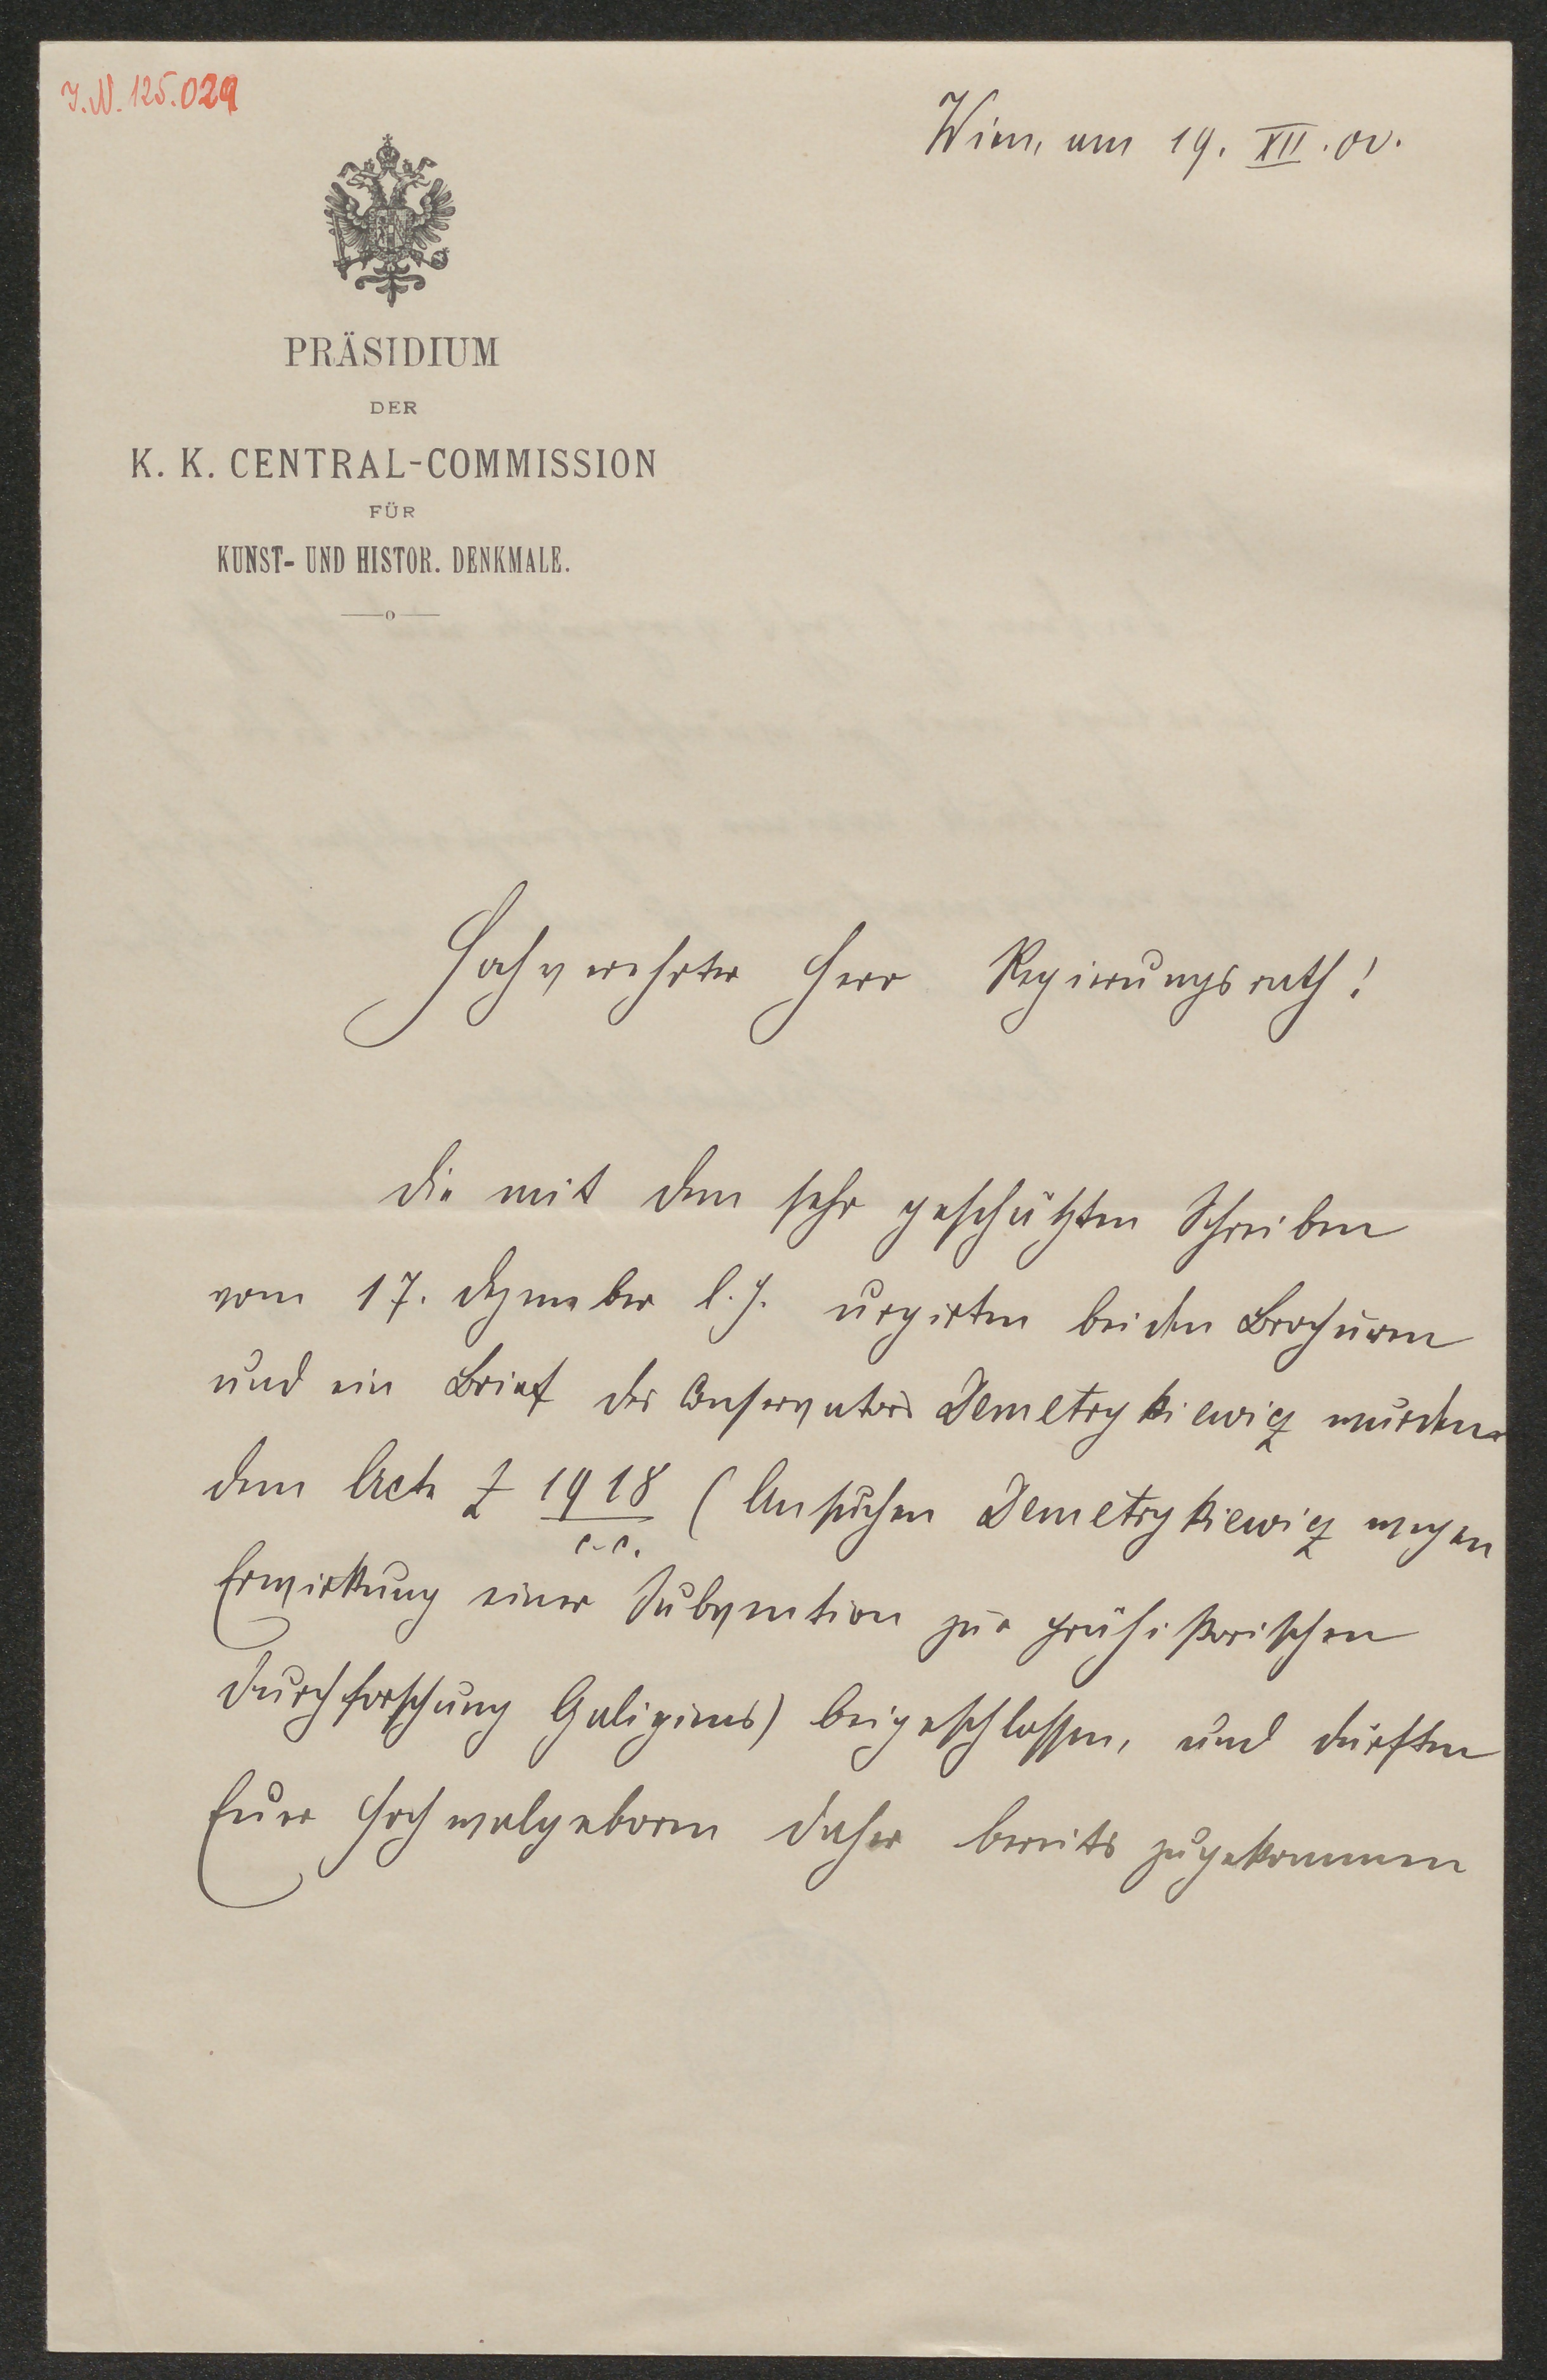 J.N. 125.029
Wien, am 19. XII. 00.
PRÄSIDIUM
DER
K. K. CENTRAL-COMMISSION
FÜR
KUNST- UND HISTOR. DENKMALE.
Hochverehrter Herr Regierungsrath!
Die mit dem sehr geschätzten Schreiben
vom 17. Dezember l. J. urgirten beiden Brochuren
und ein Brief des Conservators Demetrykiewicz wurden
dem Acte Z 1918 (Ansuchen Demetrykiewicz wegen
c.c.
Erwirkung einer Subvention zur prähistorischen
Durchforschung Galiziens) beigeschlossen, und dürften
Euer Hochwolgeboren daher bereits zugekommen